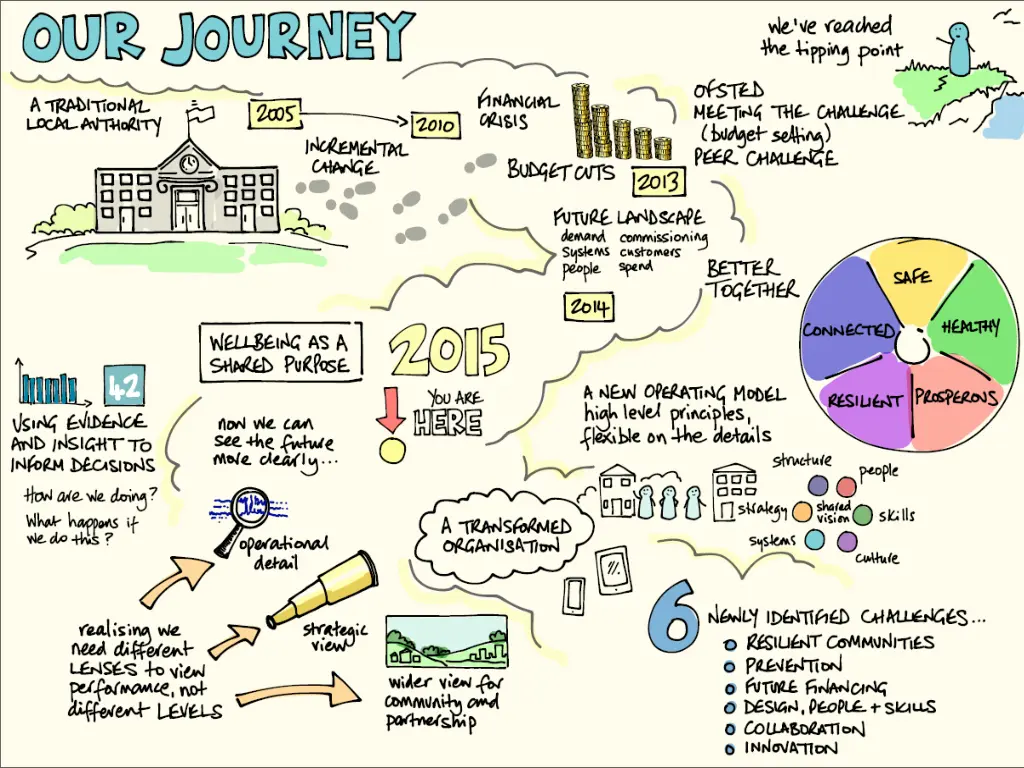 OUR JOURNEY
we've reached
the tipping point
A TRADITIONAL
LOCAL AUTHORITY
2005
2010
INCREMENTAL
CHANGE
FINANCIAL
CRISIS
BUDGET CUTS
2013
OFSTED
MEETING THE CHALLENGE
(budget setting)
PEER CHALLENGE
FUTURE LANDSCAPE
demand commissioning
systems customers
people spend
2014
BETTER
TOGETHER
SAFE
HEALTHY
PROSPEROUS
RESILIENT
CONNECTED
WELLBEING AS A
SHARED PURPOSE
2015
YOU ARE
HERE
42
USING EVIDENCE
AND INSIGHT TO
INFORM DECISIONS
How are we doing?
What happens if
we do this?
now we can
see the future
more clearly...
operational
detail
strategic
view
realising we
need different
LENSES to view
performance, not
different LEVELS
wider view for
community and
partnership
A NEW OPERATING MODEL
high level principles,
flexible on the details
A TRANSFORMED
ORGANISATION
structure
people
strategy
shared
vision
skills
systems
culture
6 NEWLY IDENTIFIED CHALLENGES...
RESILIENT COMMUNITIES
PREVENTION
FUTURE FINANCING
DESIGN, PEOPLE + SKILLS
COLLABORATION
INNOVATION